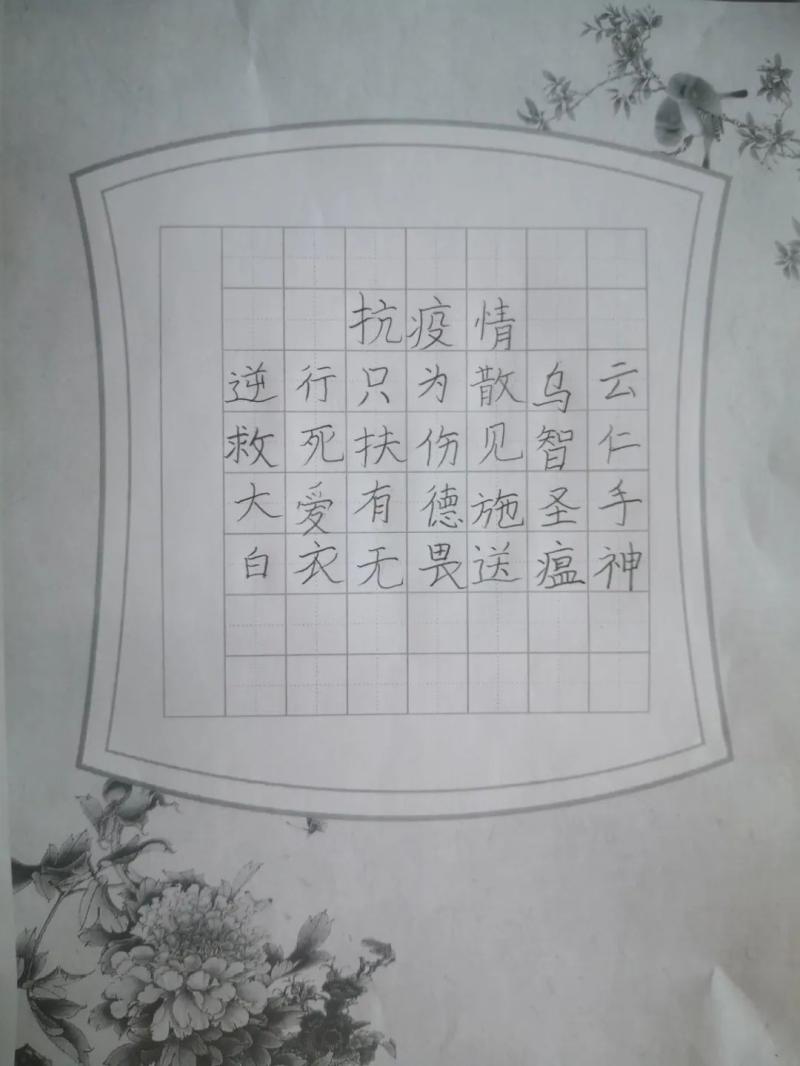 抗疫情
逆行只为散乌云
救死扶伤见智仁
大爱有德施圣手
白衣无畏送瘟神